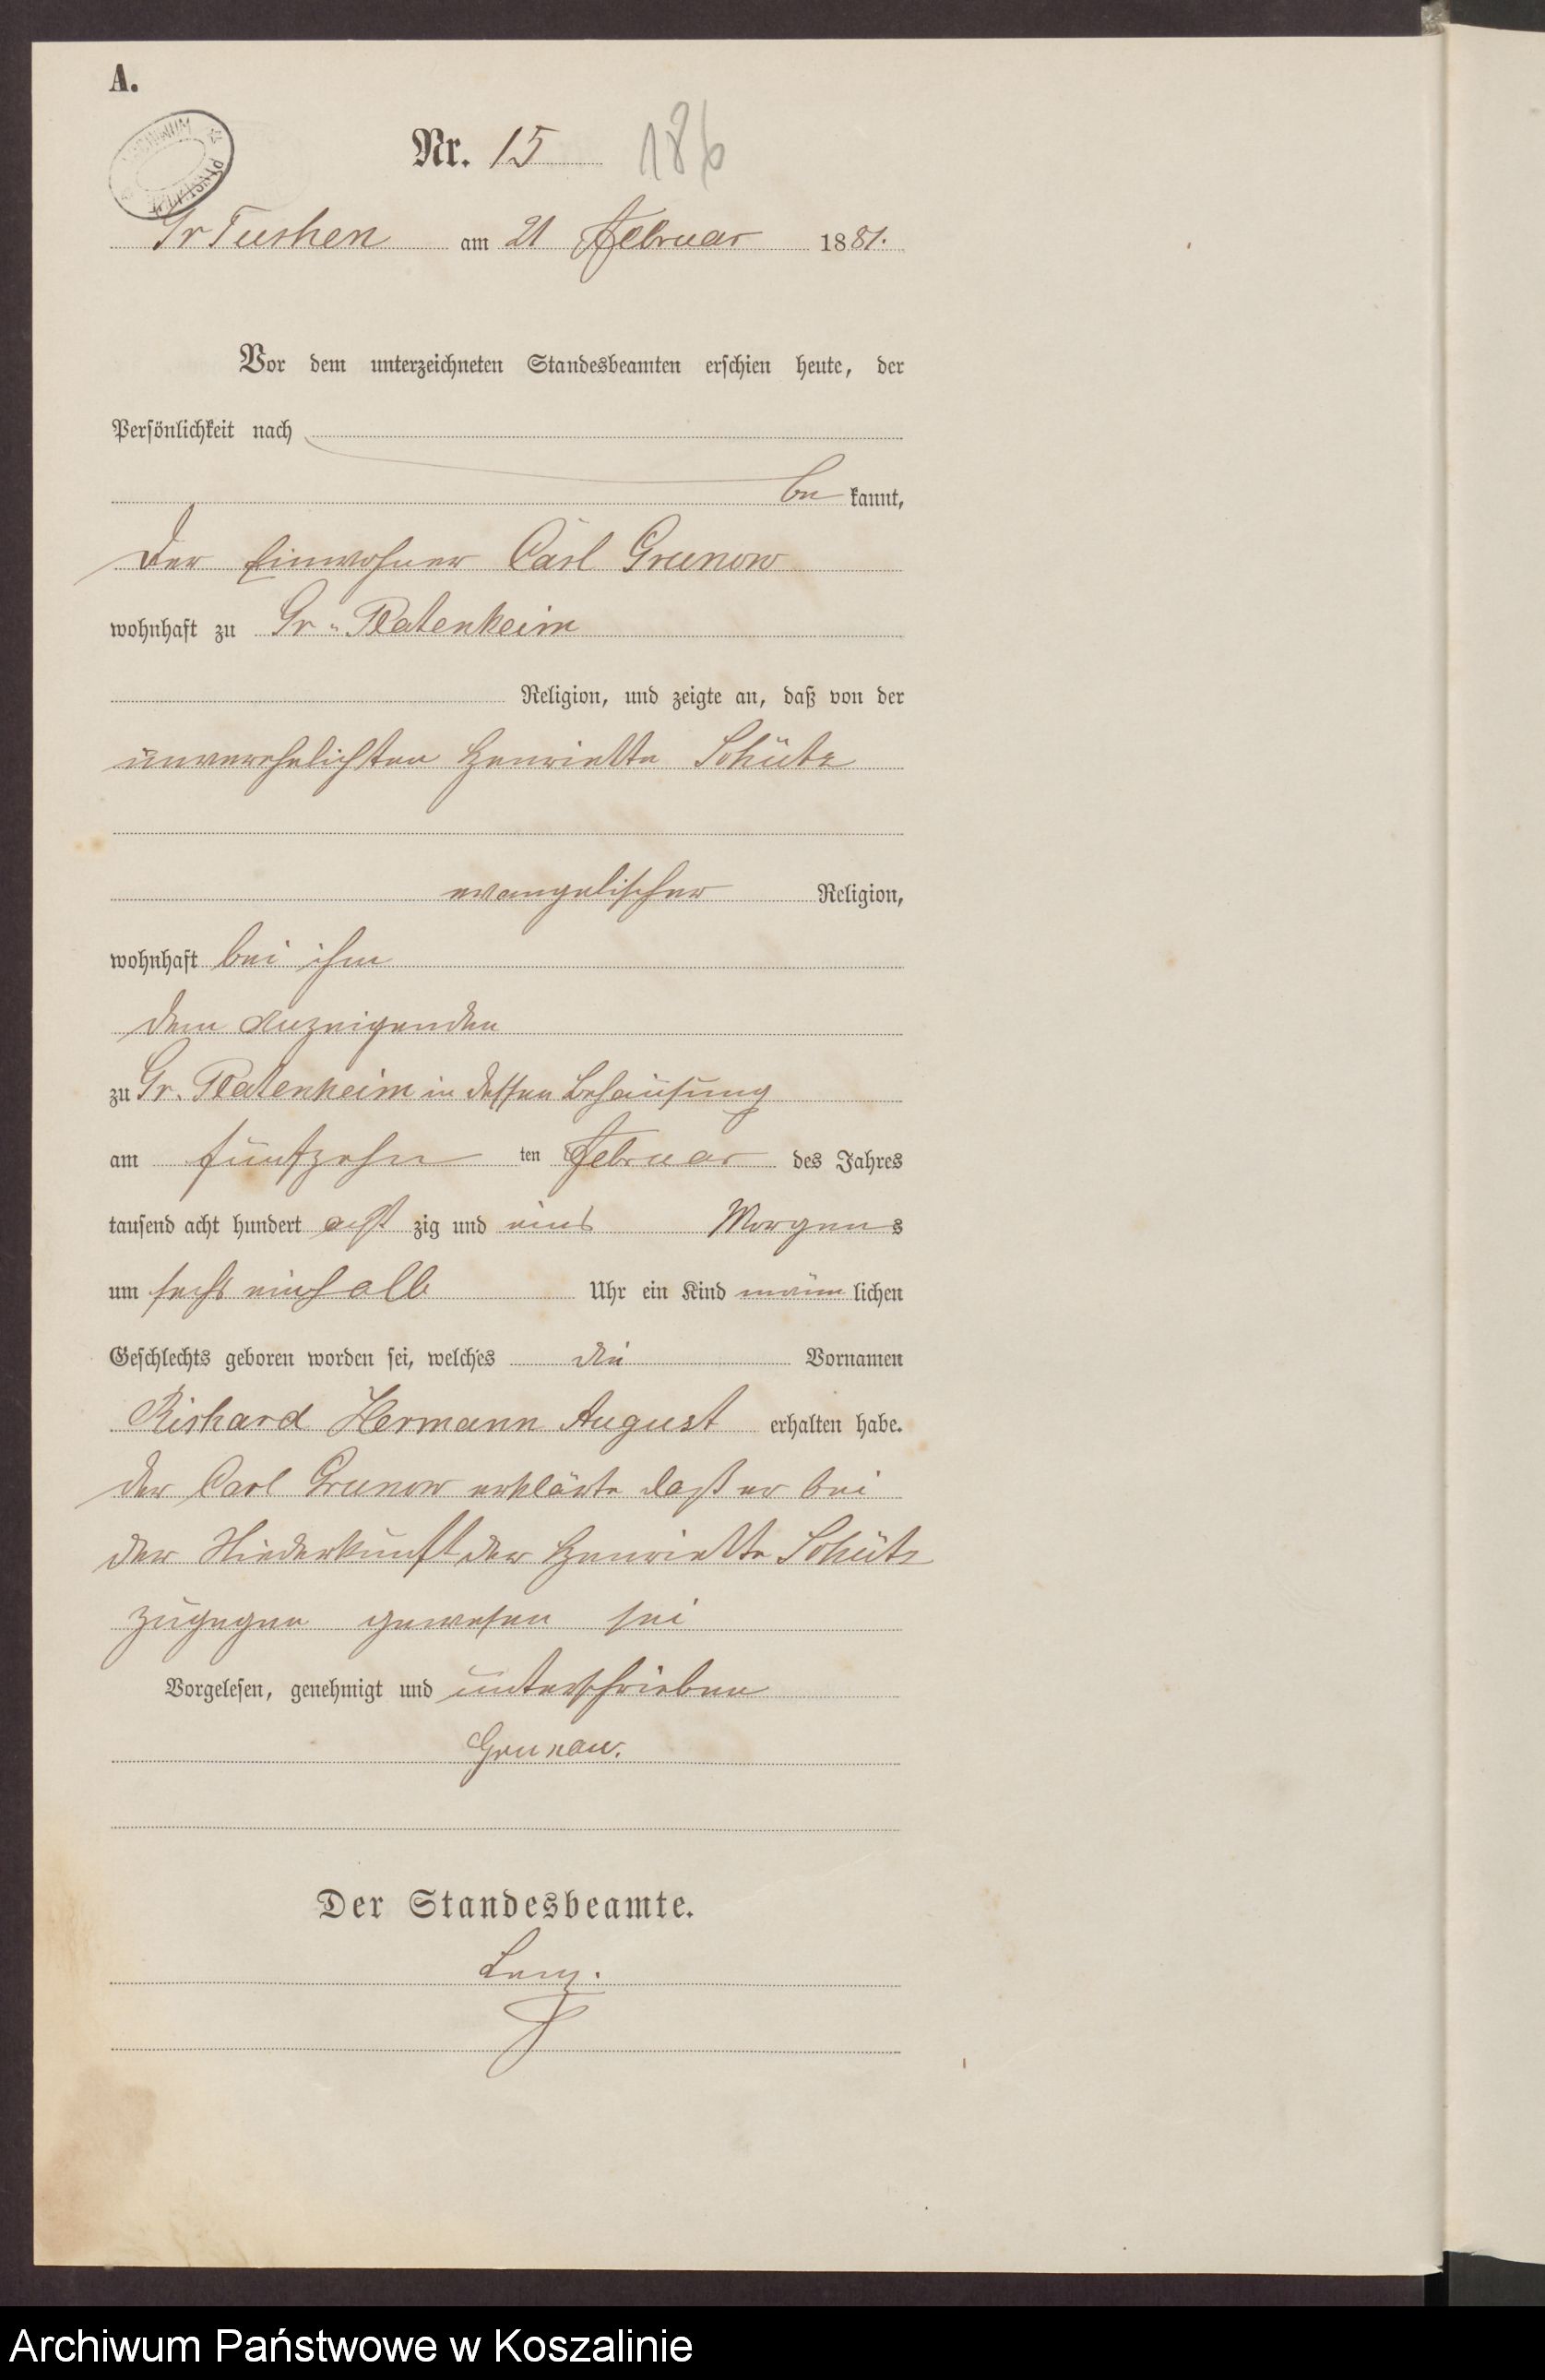 A.
ARCHIWUM
Nr. 15 186
Gr Tuchen am 21 Februar 1881.
Vor dem unterzeichneten Standesbeamten erschien heute, der
Persönlichkeit nach
be kannt,
der Einwohner Carl Grunow
wohnhaft zu Gr. Platenheim
Religion, und zeigte an, daß von der
unverehelichten Henriette Schütz
evangelischer Religion,
wohnhaft bei ihm
dem Anzeigenden
zu Gr. Platenheim in dessen Behausung
am fünfzehn ten Februar des Jahres
tausend acht hundert acht zig und eins Morgens
um sechs einhalb Uhr ein Kind männ lichen
Geschlechts geboren worden sei, welches die Vornamen
Richard Hermann August erhalten habe.
der Carl Grunow erklärte daß er bei
der Niederkunft der Henriette Schütz
zugegen gewesen sei
Vorgelesen, genehmigt und unterschrieben
Grunau.
Der Standesbeamte.
Archiwum Państwowe w Koszalinie